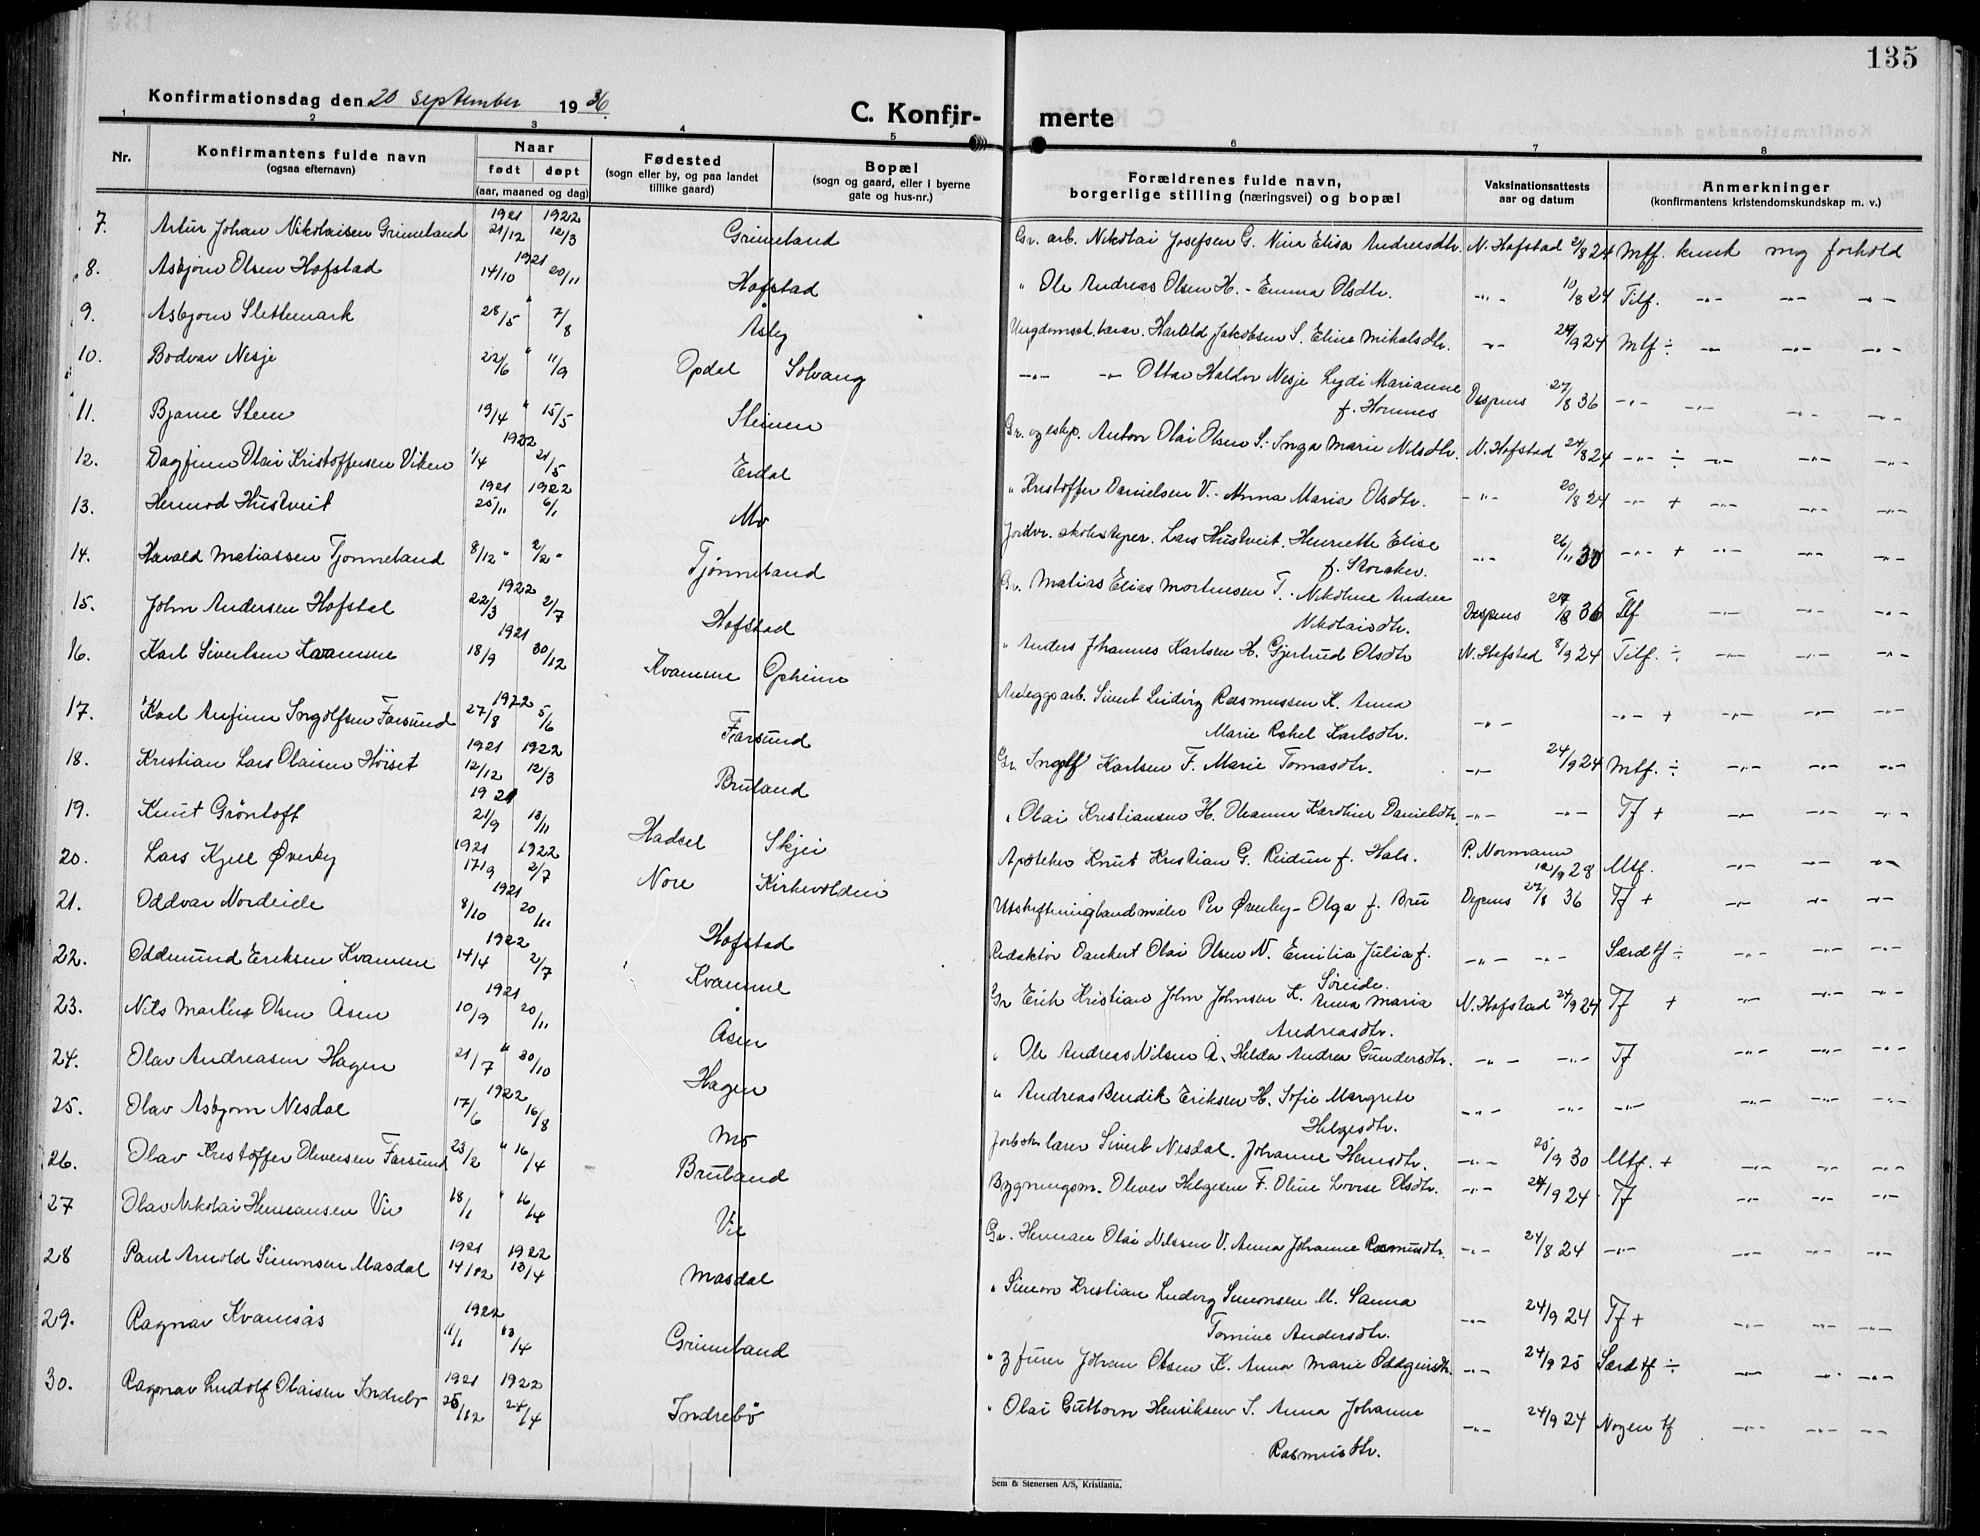 135
Konfirmationsdag den 20 september 1936.
C. Konfir- merte
1 2 3 4 5 6 7 8
Nr. Konfirmantens fulde navn (ogsaa efternavn) Naar født døpt (aar, maaned og dag) Fødested (sogn eller by, og paa landet tillike gaard) Bopæl (sogn og gaard, eller i byerne gate og hus-nr.) Forældrenes fulde navn, borgerlige stilling (næringsvei) og bopæl Vaksinationsattests aar og datum Anmerkninger (konfirmantens kristendomskundskap m. v.)
7. Artur Johan Nikolaisen Grimeland 1921 21/12 1922 12/3 Grimeland Gr. arb. Nikolai Josefsen G. Nina Elisa Andreasdtr. N. Hofstad 21/8 24 Mtf. kunsk og forhold
8. Asbjørn Olsen Hofstad 1921 14/10 20/11 Hofstad " Ole Andreas Olsen H. - Emma Olsdtr. -"- 10/8 24 Tilf. -"- -"- -"-
9. Asbjørn Slettemark 28/5 " 7/8 Åsly Ungdomssk. lærer. Harald Jakobsen S. Eline Mikalsdtr. -"- 24/9 24 Mtf ÷ -"- -"- -"-
10. Bodvar Nesje 22/6 " 11/9 Opdal Solvang -"- -"- Ottar Haldor Nesje Lydi Marianne f. Homnes Dispens 27/8 36 -"- -"- -"- -"-
11. Bjarne Steen 19/4 " 15/5 Steinen Gr. og eskp. Anton Olai Olsen S. - Inga Marie Nilsdtr. N. Hofstad 24/8 24 -"- ÷ -"- -"- -"-
12. Dagfinn Olai Kristoffersen Viken 1922 1/4 21/5 Erdal " Kristoffer Danielsen V. - Anna Maria Olsdtr. -"- 20/8 24 -"- + -"- -"- -"-
13. Hermod Hustveit 1921 25/11 1922 6/1 Mo Jordbr. skolestyrer. Lars Hustveit. Henriette Elise f. Storaker. -"- 26/11 30 -"- + -"- -"- -"-
14. Harald Matiassen Tjønneland 8/12 " 2/2 " Tjønneland Gr. Matias Elias Mortensen T. - Nikoline Andrea Nikolaisdtr. Dispens 27/8 36 Tlf -"- -"- -"-
15. John Andersen Hofstad 1922 22/3 2/7 Hofstad " Anders Johannes Karlsen H. Gjertrud Olsdtr N. Hofstad 8/9 24 Tilf. ÷ -"- -"- -"-
16. Karl Sivertsen Kvamme 1921 18/9 30/12 Kvamme Opheim Anleggsarb. Sivert Ludvig Rasmussen K. Anna Marie Rakel Karlsdtr. -"- -"- + -"- -"- -"-
17. Karl Anfinn Ingolfsen Farsund 1922 27/8 5/6 Farsund Gr. Ingolf Karlsen F. Marie Tomasdtr. -"- 24/9 24 Mtf. ÷ -"- -"- -"-
18. Kristian Lars Olaisen Høiset 1921 12/12 1922 12/3 Bruland " Olai Kristiansen H. Oleanna Karoline Danielsdtr. -"- -"- Tf + -"- -"- -"-
19. Knut Grøntoft 1921 21/9 13/11 Hadsel Skjei Apoteker Knut Kristian G. Reidun f. Hals. P. Normann 12/9 28 Mtf. -"- -"- -"-
20. Lars Kjell Øverby 1921 17/9 1922 2/7 Nore Kirkevolden Utskiftninglandmåler Per Øverby - Olga f. Bru Dispens 27/8 36 Tf + -"- -"- -"-
21. Oddvar Nordeide 1921 8/10 20/11 Hofstad Redaktør Dankert Olai Olsen N. Emilia Julia f. Søreide. -"- -"- Særd tf ÷ -"- -"- -"-
22. Oddmund Eriksen Kvamme 1922 14/4 2/7 Kvamme Gr Erik Kristian John Johnsen K. Anna Maria Andreasdtr. N. Hofstad 24/9 24 Tf + -"- -"- -"-
23. Nils Martin Olsen Åsen 1921 10/9 20/11 Åsen " Ole Andreas Nilsen Å. Helda Andrea Gundersdtr. -"- -"- Tf -"- -"- -"-
24. Olav Andreasen Hagen 21/7 " 30/10 Hagen " Andreas Bendik Eriksen H. Sofie Margrete Helgesdtr. -"- -"- -"- -"- -"- -"-
25. Olav Asbjørn Nesdal 1922 17/6 16/8 Mo lærer Sivert Nesdal. Johanne Hansdtr. -"- 25/9 30 Mtf. + -"- -"- -"-
26. Olav Kristoffer Oliversen Farsund 23/2 " 16/4 Bruland Bygningsm. Oliver Helgesen F. Oline Lovise Olsdtr. -"- 24/9 24 Tf -"- -"- -"-
27 Olav Nikolai Hermansen Vie 18/1 " 16/4 Vie Gr. Herman Olai Nilssen V. Anna Johanne Rasmusdtr. -"- 24/8 24 -"- -"- -"- -"-
28 Paul Arnold Simonsen Masdal 1921 14/12 1922 13/4 Masdal " Simon Kristian Ludvig Simonsen M. Sanna Tomine Andersdtr. -"- 24/9 24 Tf + -"- -"- -"-
29. Ragnar Kvamsås 1922 11/1 13/4 Grimeland " Johan Olsen K. Anna Marie Oddgeirsdtr. -"- 24/9 25 Særd tf ÷ -"- -"- -"-
30. Ragnar Ludolf Olaisen Indrebø 1921 25/12 1922 24/4 Indrebø " Olai Guttorm Henriksen I. Anna Johanne Rasmusdtr. -"- 24/9 24 Nogen tf -"- -"- -"-
Sem & Stenersen A/S, Kristiania.